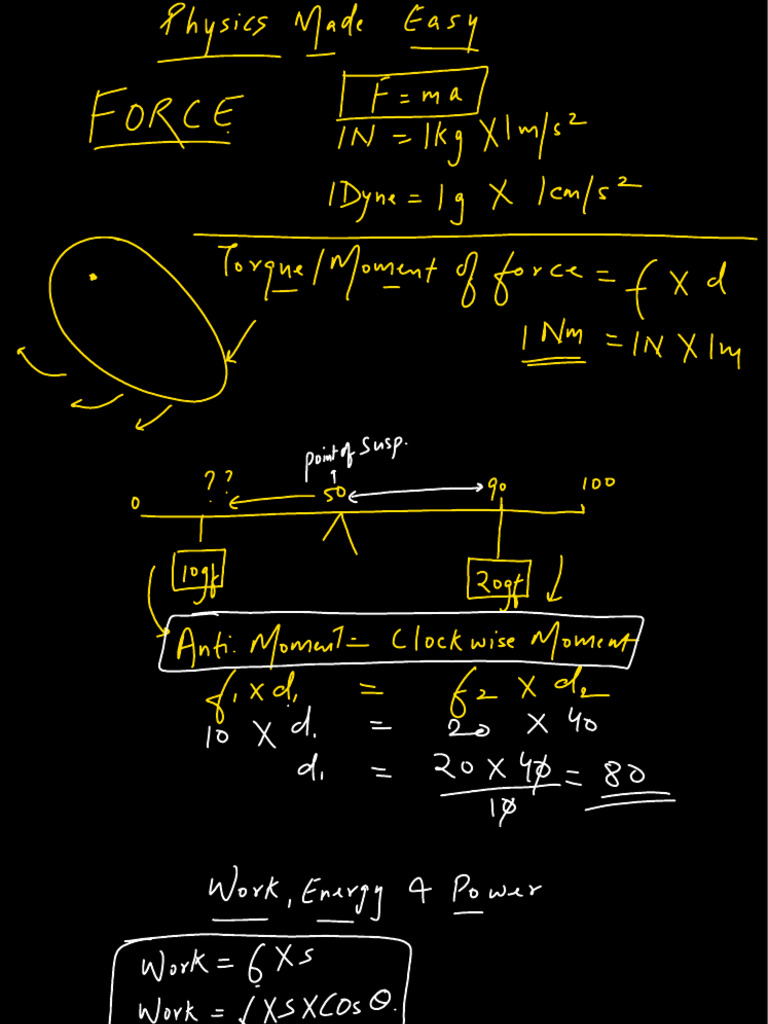 Physics Made Easy
FORCE
F = ma
1N = 1kg X 1m/s²
1Dyne = 1g X 1cm/s²
Torque/Moment of force = f x d
1 Nm = 1N X 1m
point of Susp.
0 ?? 50 90 100
10gf 20gf
Anti. Moment = Clockwise Moment
f₁ x d₁ = f₂ x d₂
10 X d₁ = 20 x 40
d₁ = 20 X 40 = 80
10
Work, Energy & Power
Work = f X s
Work = f X s X Cos θ.